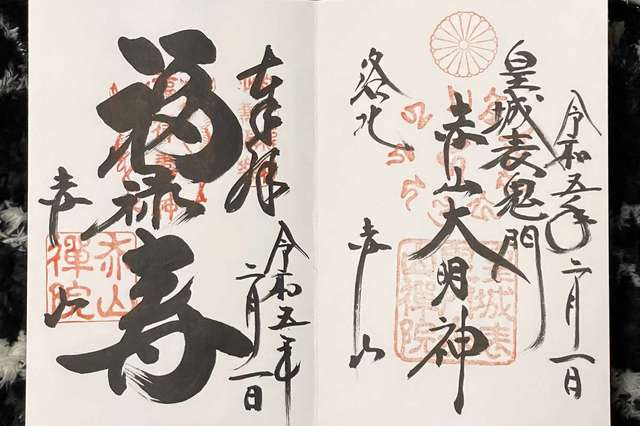 令和五年二月一日
皇城表鬼門
赤山大明神
洛北
赤山
令和五年二月一日
奉拝
福禄寿
赤山
赤山
禅院